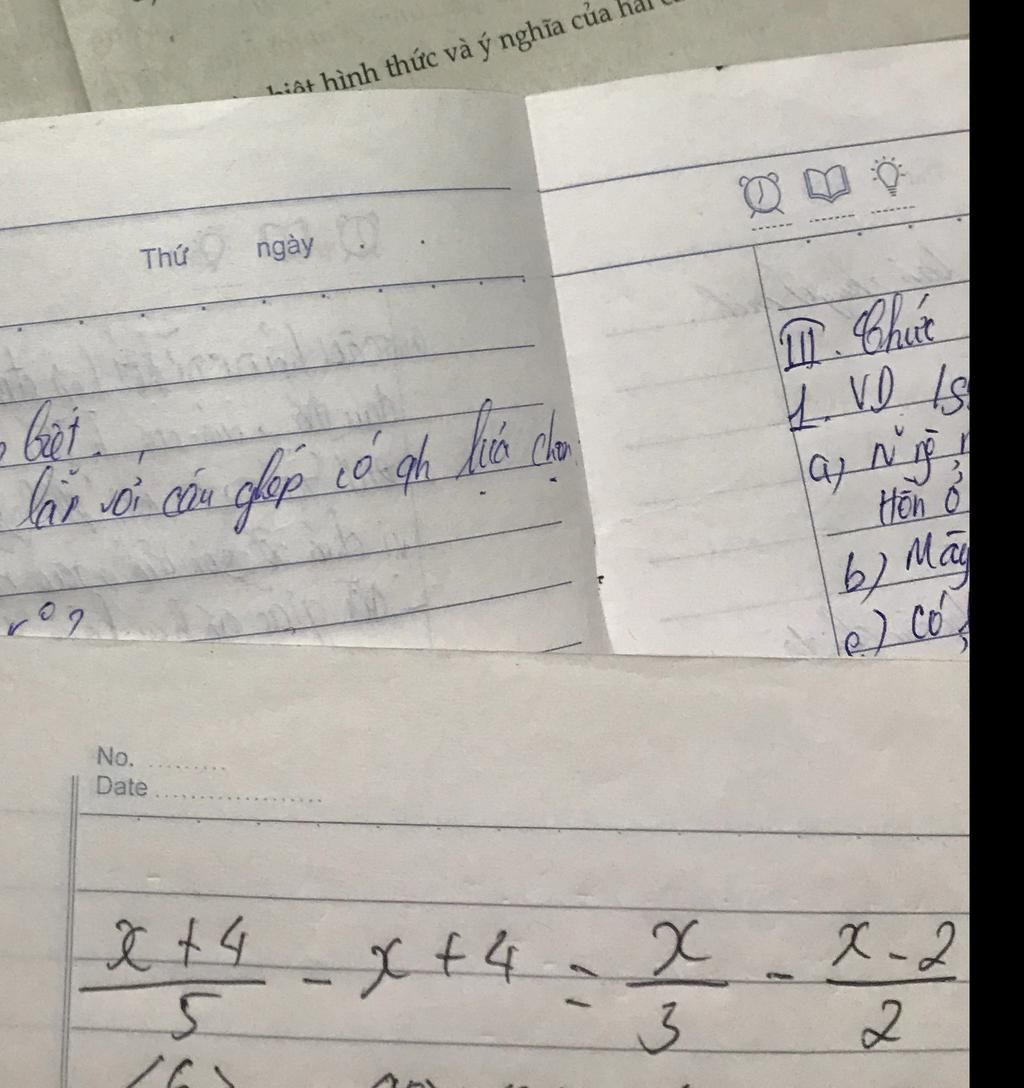 biệt hình thức và ý nghĩa của hai
Thứ ngày
biệt.
lặp với câu ghép có qh lựa chọn
III. Chức
1. VD
a)
Hồn ở
b) Mây
c) có
No. .........
Date ..................
x + 4 / 5 - x + 4 = x / 3 - x - 2 / 2